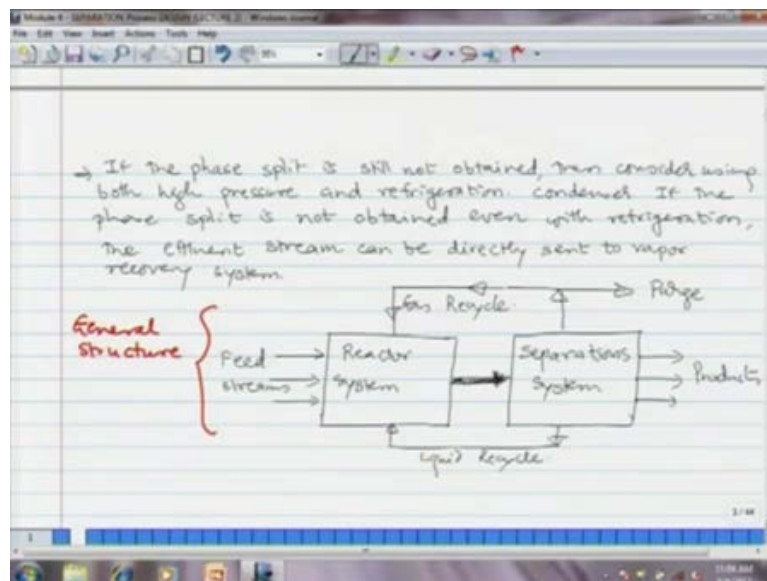 Module 4 - SEPARATION Process DESIGN (LECTURE 2) - Windows Journal
File Edit View Insert Actions Tools Help
→ If the phase split is still not obtained, then consider using
both high pressure and refrigeration. condenser If the
phase split is not obtained even with refrigeration,
the effluent stream can be directly sent to vapor
recovery system.
Gas Recycle
Purge
General
structure
Feed
streams
Reactor
system
Separations
System
Products
Liquid Recycle
1